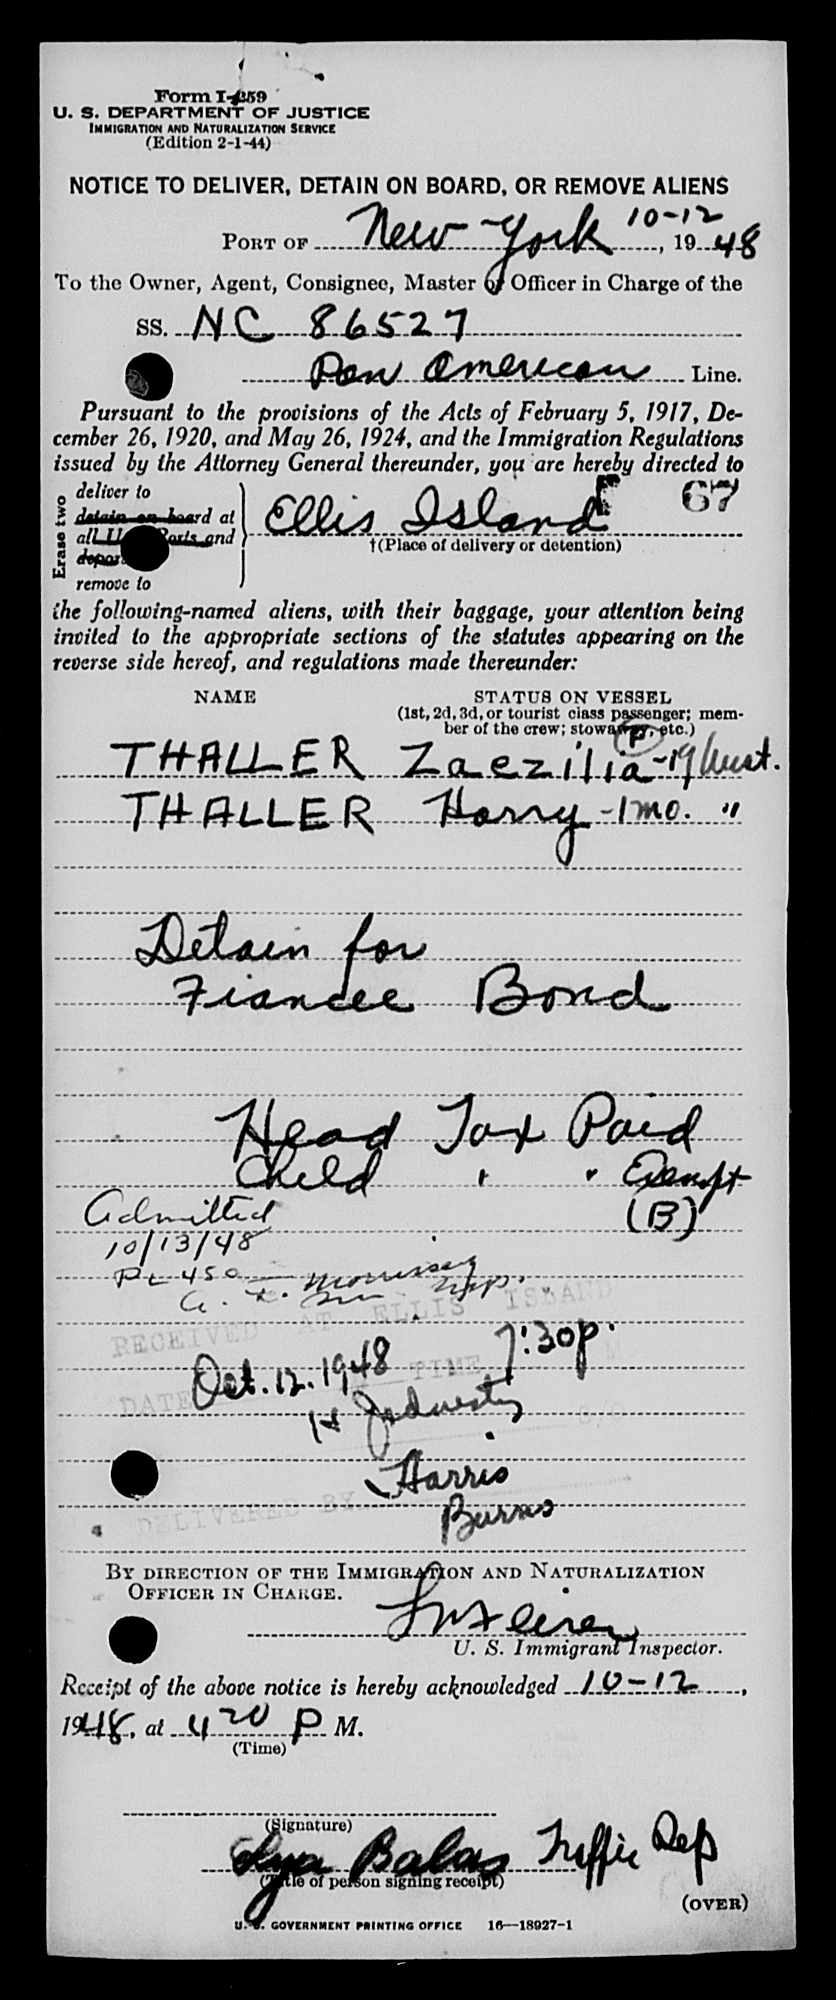 Form I-259
U. S. DEPARTMENT OF JUSTICE
IMMIGRATION AND NATURALIZATION SERVICE
(Edition 2-1-44)
NOTICE TO DELIVER, DETAIN ON BOARD, OR REMOVE ALIENS
PORT OF New York 10-12, 1948
To the Owner, Agent, Consignee, Master or Officer in Charge of the
SS. NC 86527
Pan American Line.
Pursuant to the provisions of the Acts of February 5, 1917, De-
cember 26, 1920, and May 26, 1924, and the Immigration Regulations
issued by the Attorney General thereunder, you are hereby directed to
Erase two
deliver to
detain on board at
all Ports and
remove to
Ellis Island 67
†(Place of delivery or detention)
the following-named aliens, with their baggage, your attention being
invited to the appropriate sections of the statutes appearing on the
reverse side hereof, and regulations made thereunder:
NAME STATUS ON VESSEL
(1st, 2d, 3d, or tourist class passenger; mem-
ber of the crew; stowaway, etc.)
P
THALLER Zaezilia-19 Aust.
THALLER Harry -1 mo. "
Detain for
Fiancee Bond
Head Tax Paid
Child " " Exempt
(B)
Admitted
10/13/48
PL 450 Morrissey
RECEIVED AT ELLIS ISLAND
Oct. 12. 1948 7:30p.
DATE TIME M
Harris
DELIVERED BY
Burns
BY DIRECTION OF THE IMMIGRATION AND NATURALIZATION
OFFICER IN CHARGE.
U. S. Immigrant Inspector.
Receipt of the above notice is hereby acknowledged 10-12,
1948, at 4 20 P M.
(Time)
(Signature)
Balas Traffic Rep
(Title of person signing receipt)
(OVER)
U. S. GOVERNMENT PRINTING OFFICE 16—18927-1